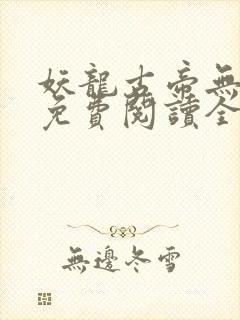 妖龍古帝無
免費閱讀全
無邊冬雪